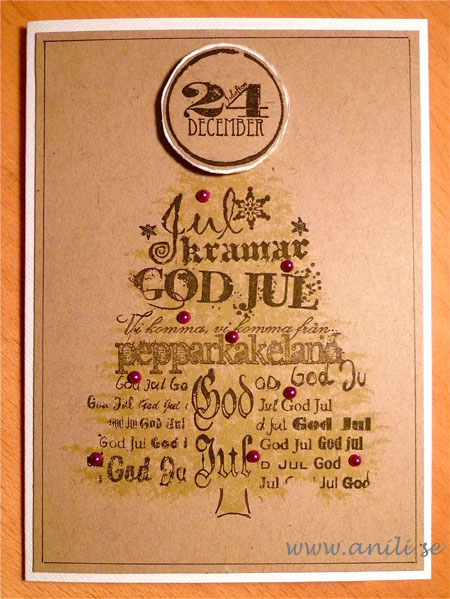 24
Julafton
DECEMBER
Jul
kramar
GOD JUL
Vi komma, vi komma från...
pepparkakeland
God Jul Go
OD God Ju
God
God Jul God Jul
Jul God Jul
God Jul God Jul
d jul God Jul
God Jul God
God Jul God jul
God Ju
Jul
D JUL God
Jul God Jul God
www.anili.se